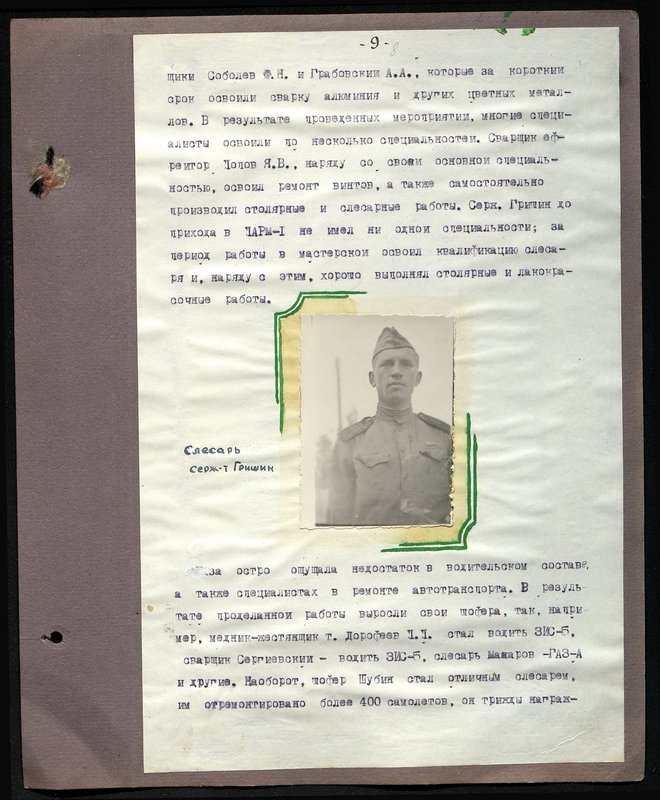 - 9 -
8
щики Соболев Ф.Н. и Грабовский А.А., которые за короткий
срок освоили сварку алюминия и других цветных метал-
лов. В результате проведенных мероприятий, многие специ-
алисты освоили по несколько специальностей. Сварщик еф-
рейтор Попов Я.В., наряду со своей основной специаль-
ностью, освоил ремонт винтов, а также самостоятельно
производил столярные и слесарные работы. Серж. Гришин до
прихода в ПАРМ-I не имел ни одной специальности; за
период работы в мастерской освоил квалификацию слеса-
ря и, наряду с этим, хорошо выполнял столярные и лакокра-
сочные работы.
Слесарь
серж-т Гришин
База остро ощущала недостаток в водительском составе,
а также специалистах в ремонте автотранспорта. В резуль-
тате проделанной работы выросли свои шофера, так, напри-
мер, медник-жестянщик т. Дорофеев стал водить ЗИС-5,
сварщик Сергиевский - водить ЗИС-5, слесарь Макаров -ГАЗ-А
и другие. Наоборот, шофер Шубин стал отличным слесарем,
им отремонтировано более 400 самолетов, он трижды награж-